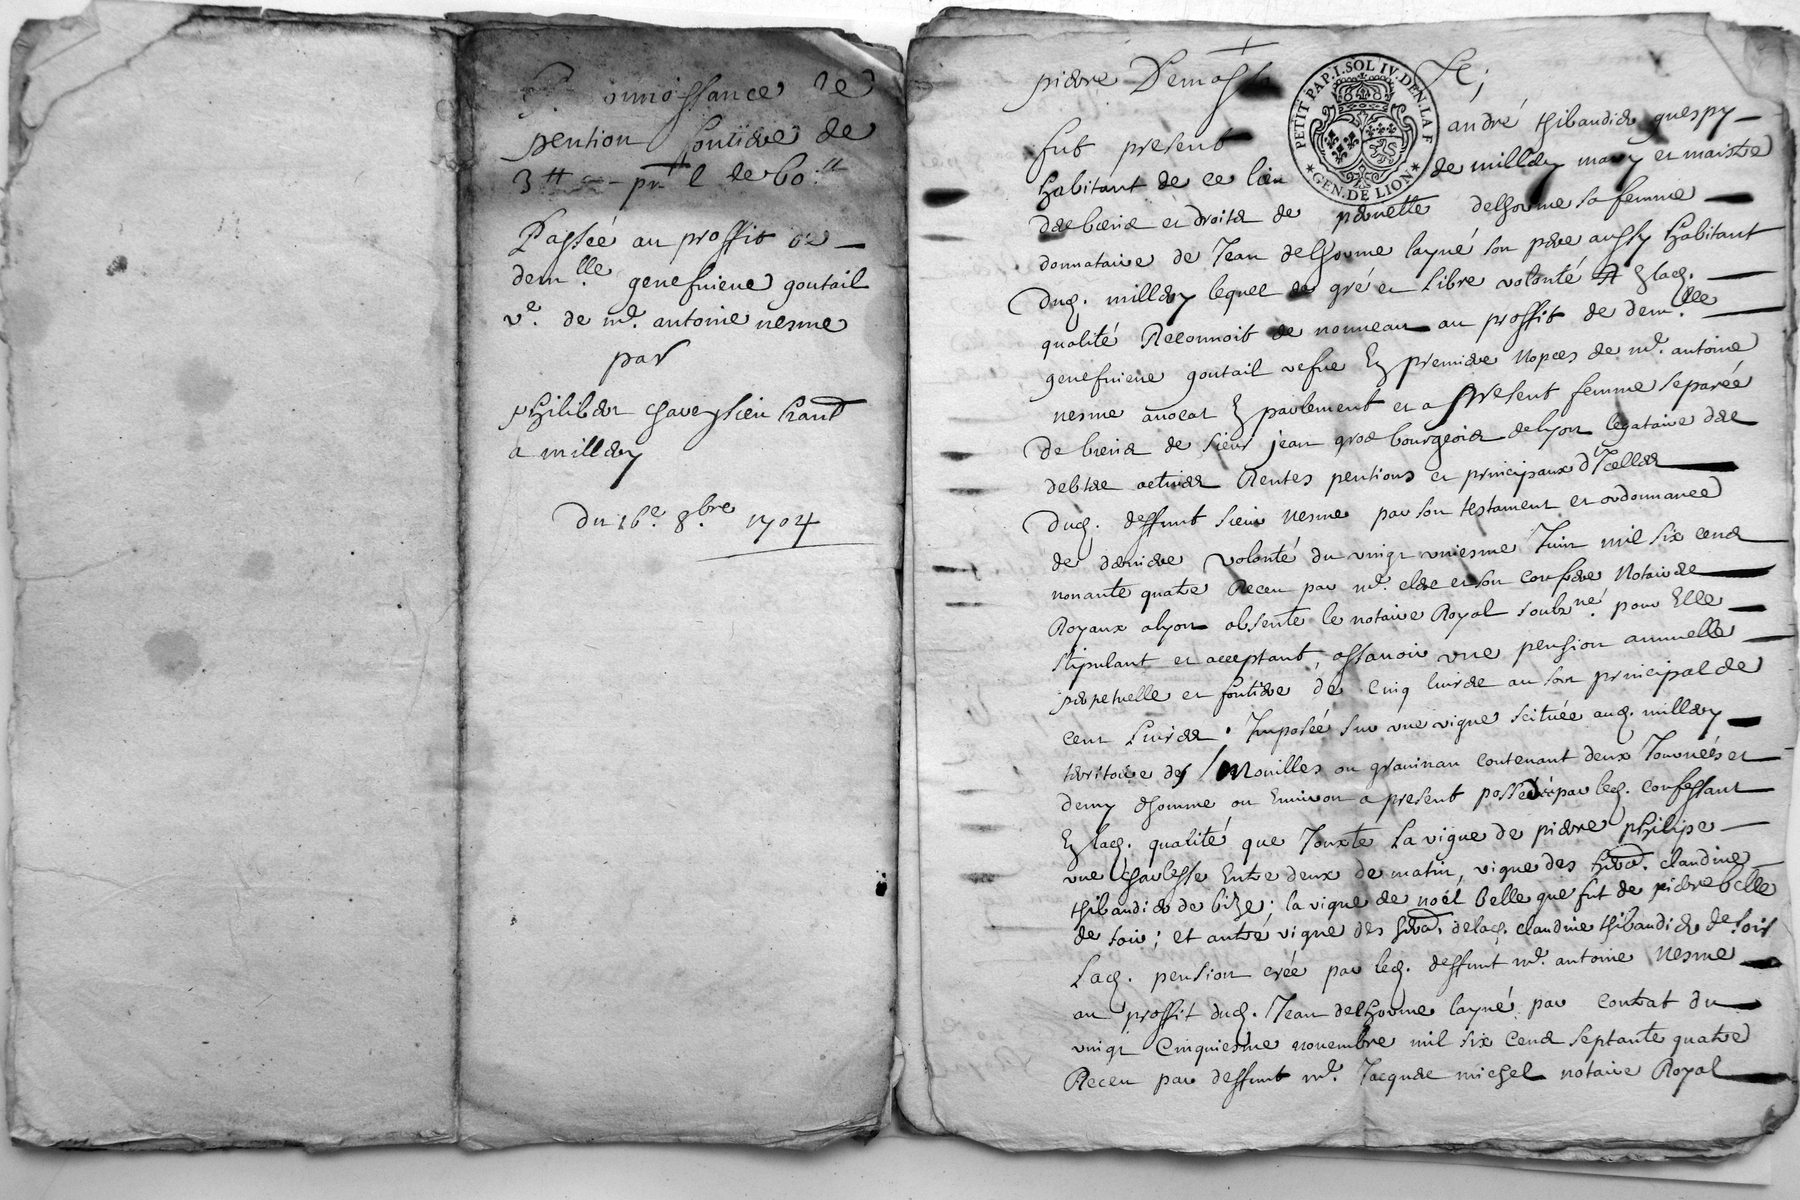 onnoissance de
pention fontiere de
3tt pnal de 60tt
Passée au proffit de
demlle genefvieve goutail
ve. de me. antoine nesme
par
philiber chaveysieu
a millery
Du 16e. 8bre 1704
pierre
PETIT PAP. 1. SOL IV. DEN. LA F
GEN. DE LION
fut present andré thibaudier guespy
habitant de ce lieu de millery mary et maistre
des biens et droits de pernette delhorme sa femme
donnataire de Jean delhorme layné son pere aussy habitant
dud. millery lequel de gré et libre volonté En lad.
qualité Reconnoit de nouveau au proffit de demlle
genefvieve goutail vefve En premiere Nopces de me. antoine
nesme avocat En parlement et a present femme separée
de biens de sieur jean gros bourgeois de lyon legataire des
debtes actives Rentes pentions et principaux d'Icelles
dud. deffunt sieur nesme par son testament et ordonnance
de derniere volonté du vingt uniesme Juin mil six cens
nonante quatre Receu par me. et son confrere Notaires
Royaux a lyon absente le notaire Royal soubzné. pour Elle
stipulant et acceptant, assavoir une pension annuelle
perpetuelle et fontiere de Cinq livres au sort principal de
cent Livres. Imposée sur une vigne scituée aud. millery
territoire des Mouilles ou gravinan contenant deux Journées et
demy dhomme ou Environ a present possedée par led. confessant
En lad. qualité que Jouxte La vigne de pierre philipe
une Entre deux de matin, vigne des hers. claudine
thibaudier de bize; la vigne de noël belle que fut de pierre belle
de soir; et autre vigne des hers. de lad. claudine thibaudier de soir
Lad. pension crée par led. deffunt me. antoine Nesme
au proffit dud. Jean delhorme layné par contrat du
vingt Cinquiesme novembre mil six cens septante quatre
Receu par deffunt me. Jacques michel notaire Royal